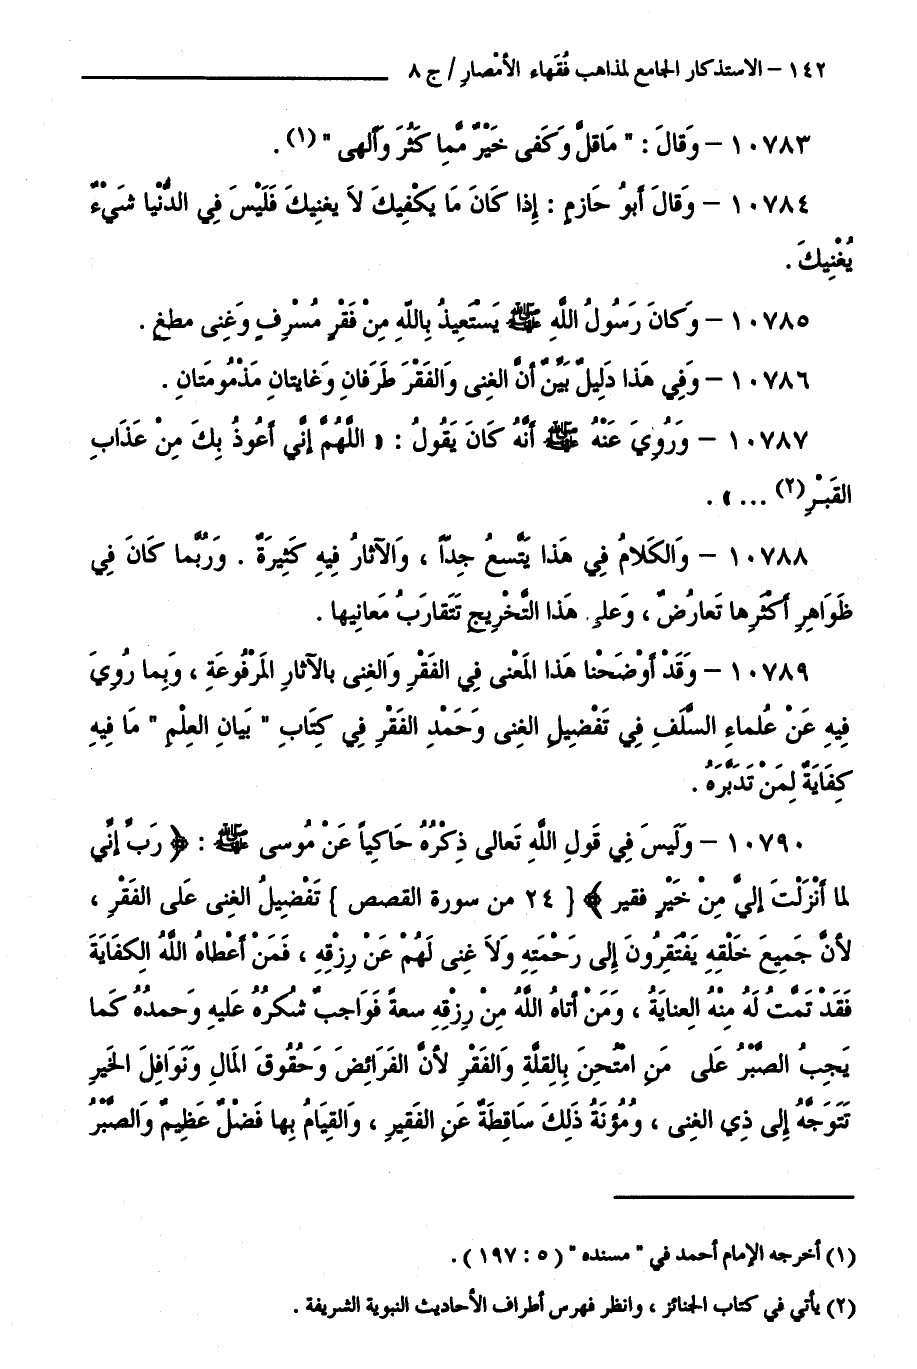 ١٤٢ – الاستذكار الجامع لمذاهب فُقَهاء الأمْصارِ / ج ٨
١٠٧٨٣ – وَقالَ : " مَاقلَّ وَكَفى خَيْرٌ مَّما كَثُرَ وَألهى " (١) .
١٠٧٨٤ – وَقالَ أبوُ حَازمٍ : إذا كَانَ مَا يَكْفِيكَ لاَ يغنِيكَ فَلَيْسَ فِي الدُّنْيا شَيْءٌ
يُغْنِيكَ .
١٠٧٨٥ – وَكانَ رَسُولُ اللَّهِ ﷺ يَسْتَعِيذُ بِاللّهِ مِنْ فَقْرٍ مُسْرِفٍ وَغِنى مطغٍ .
١٠٧٨٦ – وَفِي هَذا دَلِيلٌ بَيَّنٌ أنَّ الغِنى وَالفَقْرَ طَرَفانِ وَغايتانِ مَذْمُومَتَانِ .
١٠٧٨٧ – وَرُوِيَ عَنْهُ ﷺ أنَّهُ كَانَ يَقُولُ : « اللَّهُمَّ إنَّي أعُوذُ بِكَ مِنْ عَذَابِ
القَبْرِ(٢) ... » .
١٠٧٨٨ – وَالكَلامُ فِي هَذا يَتَّسعُ جِدّاً ، وَالآثارُ فِيهِ كَثِيرَةٌ . وَرُبَّما كَانَ فِي
ظَوَاهِرِ أكْثَرِها تَعارُضٌ ، وَعَلى هَذا التَّخْرِيجِ تَتَقارَبُ مَعانِيها .
١٠٧٨٩ – وَقَدْ أوْضَحْنا هَذا المَعْنى فِي الفَقْرِ وَالغِنى بالآثارِ المَرْفُوعَةِ ، وَبِما رُوِيَ
فِيهِ عَنْ عُلماءِ السَّلَفِ فِي تَفْضِيلِ الغِنى وَحَمْدِ الفَقْرِ فِي كِتَابِ " بَيانِ العِلْمِ " مَا فِيهِ
كِفَايَةٌ لِمَنْ تَدَبَّرَهُ .
١٠٧٩٠ – وَلَيسَ فِي قَولِ اللَّهِ تَعالى ذِكْرُهُ حَاكِياً عَنْ مُوسى ﷺ : ﴿ رَبَّ إنَّي
لما أنْزَلْتَ إليَّ مِنْ خَيْرٍ فقير ﴾ [ ٢٤ من سورة القصص ] تَفْضِيلُ الغِنى عَلى الفَقْرِ ،
لأنَّ جَمِيعَ خَلْقِهِ يَفْتَقِرُونَ إلى رَحْمَتِهِ وَلاَ غِنى لَهُمْ عَنْ رِزْقِهِ ، فَمَنْ أعْطاهُ اللَّهُ الكِفَايَةَ
فَقَدْ تَمَّتْ لَهُ مِنْهُ العِنايَةُ ، وَمَنْ أتاهُ اللَّهُ مِنْ رِزْقِهِ سعةً فَوَاجبٌ شكرُهُ عَليهِ وَحمدُهُ كَما
يَجِبُ الصَّبْرُ عَلَى مَنِ امْتُحِنَ بِالقِلَّةِ وَالفَقْرِ لأنَّ الفَرَائِضَ وَحُقُوقَ المَالِ وَنَوَافِلَ الخَيرِ
تَتَوَجَّهُ إلى ذِي الغِنى ، وَمُؤنَةُ ذَلِكَ سَاقِطَةٌ عَنِ الفَقِيرِ ، وَالقِيَامُ بِها فَضْلٌ عَظِيمٌ وَالصَّبْرُ
(١) أخرجه الإمام أحمد في " مسنده " ( ٥ : ١٩٧ ) .
(٢) يأتي في كتاب الجنائز ، وانظر فهرس أطراف الأحاديث النبوية الشريفة .